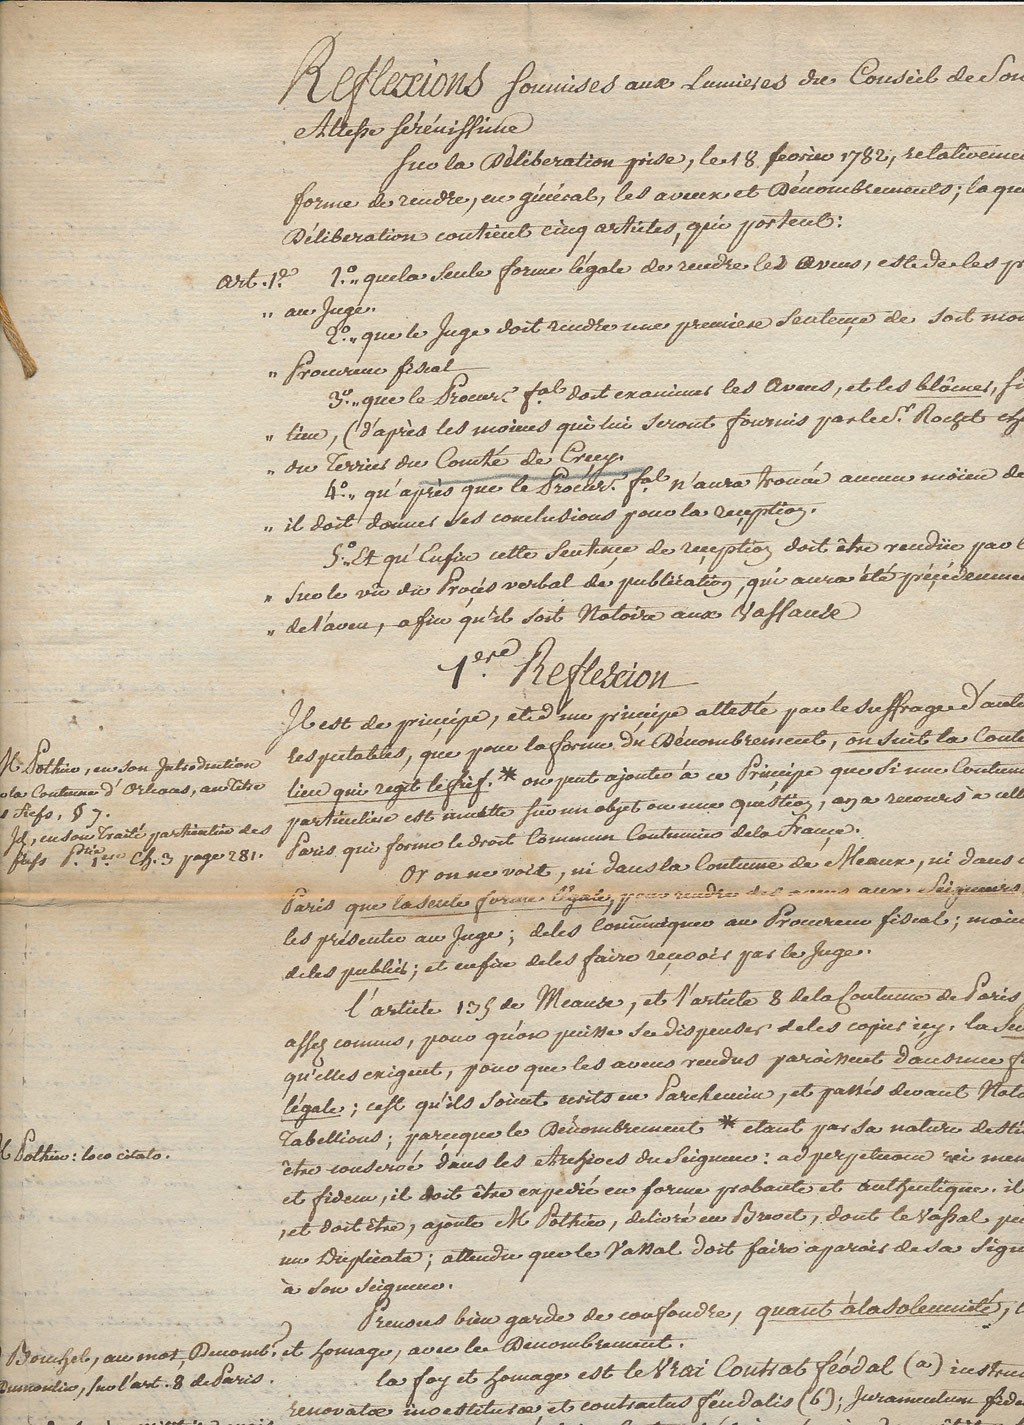 Reflexions soumises aux Lumieres du Conseil de Son
Altesse sérénissime
sur la Déliberation prise, le 18 fevrier 1782, relativeme
forme de rendre, en général, les aveux et Dénombrements; laqu
Déliberation contient cinq articles, qui portent:
art. 1.er 1.° " que la seule forme légale de rendre les Aveus, est de les p
" au Juge.
2.° " que le Juge doit rendre une premiere Sentence de soit mo
" Procureur fiscal
3.° " que le Procur.r f.al doit examiner les Aveus, et les blâmer, si
" lieu, (d'après les moiens qui lui seront fournis par le S.r
" du Terrier du Comté de Crecy.
4.° " qu'après que le Procur.r f.al n'aura trouvé aucun moïen de
" il doit donner ses conclusions pour la reception.
5.° " Et qu'Enfin cette Sentence de reception doit être rendüe par l
" sur le vû du Procés verbal de publication, qui aura été précédemme
" de l'aveu, afin qu'il soit Notoire aux Vassaux
1.ere Reflexion
Il est de principe, et d'un principe attesté par le suffrage d'aut
respectables, que pour la forme du Dénombrement, on suit la Coutu
lieu qui regit le fief. * on peut ajouter à ce Principe que si une Coutum
particuliere est muette sur un objet ou une question, on a recours à cell
Paris qui forme le droit Commun Coutumier de la France.
M Pothier, en son Introduction
a la Coutume d'Orleans, au Titre
s fiefs, § 7.
Id, en son Traité particulier des
fiefs P.rtie 1.ere Ch. 3 page 281.
Or on ne voit, ni dans la Coutume de Meaux, ni dans
Paris que la seule forme légale, pour rendre des aveus aux Seigneurs
les présenter au Juge; de les communiquer au Procureur fiscal; moin
de les publier; et enfin de les faire reçevoir par le Juge.
L'article 135 de Meaux, et l'article 8 de la Coutume de Paris
assez connus, pour qu'on puisse se dispenser de les copier icy. la Seu
qu'elles exigent, pour que les aveus rendus paroissent dans une f
légale; c'est qu'ils soient ecrits en Parchemin, et passés devant Nota
Tabellions; parceque le Dénombrement * etant par sa nature desti
être conservé dans les Archives du Seigneur: ad perpetuam rei mem
et fidem, il doit être expedié en forme probante et authentique. il
, et doit être, ajoute M Pothier, délivré en Brevet, dont le Vassal pe
un Duplicata; attendu que le Vassal doit faire aparoir de sa sign
à son seigneur.
M Pothier: loco citato.
Prenons bien garde de confondre, quant à la solemnité,
et homage, avec le Dénombrement.
la foy et homage est le Vrai Contrat féodal (a) instru
renovatæ investituræ et contractus feudalis (b); Juramentum fide
Bouchel, au mot, Denomb.t
Dumoulin, sur l'art. 8 de Paris.